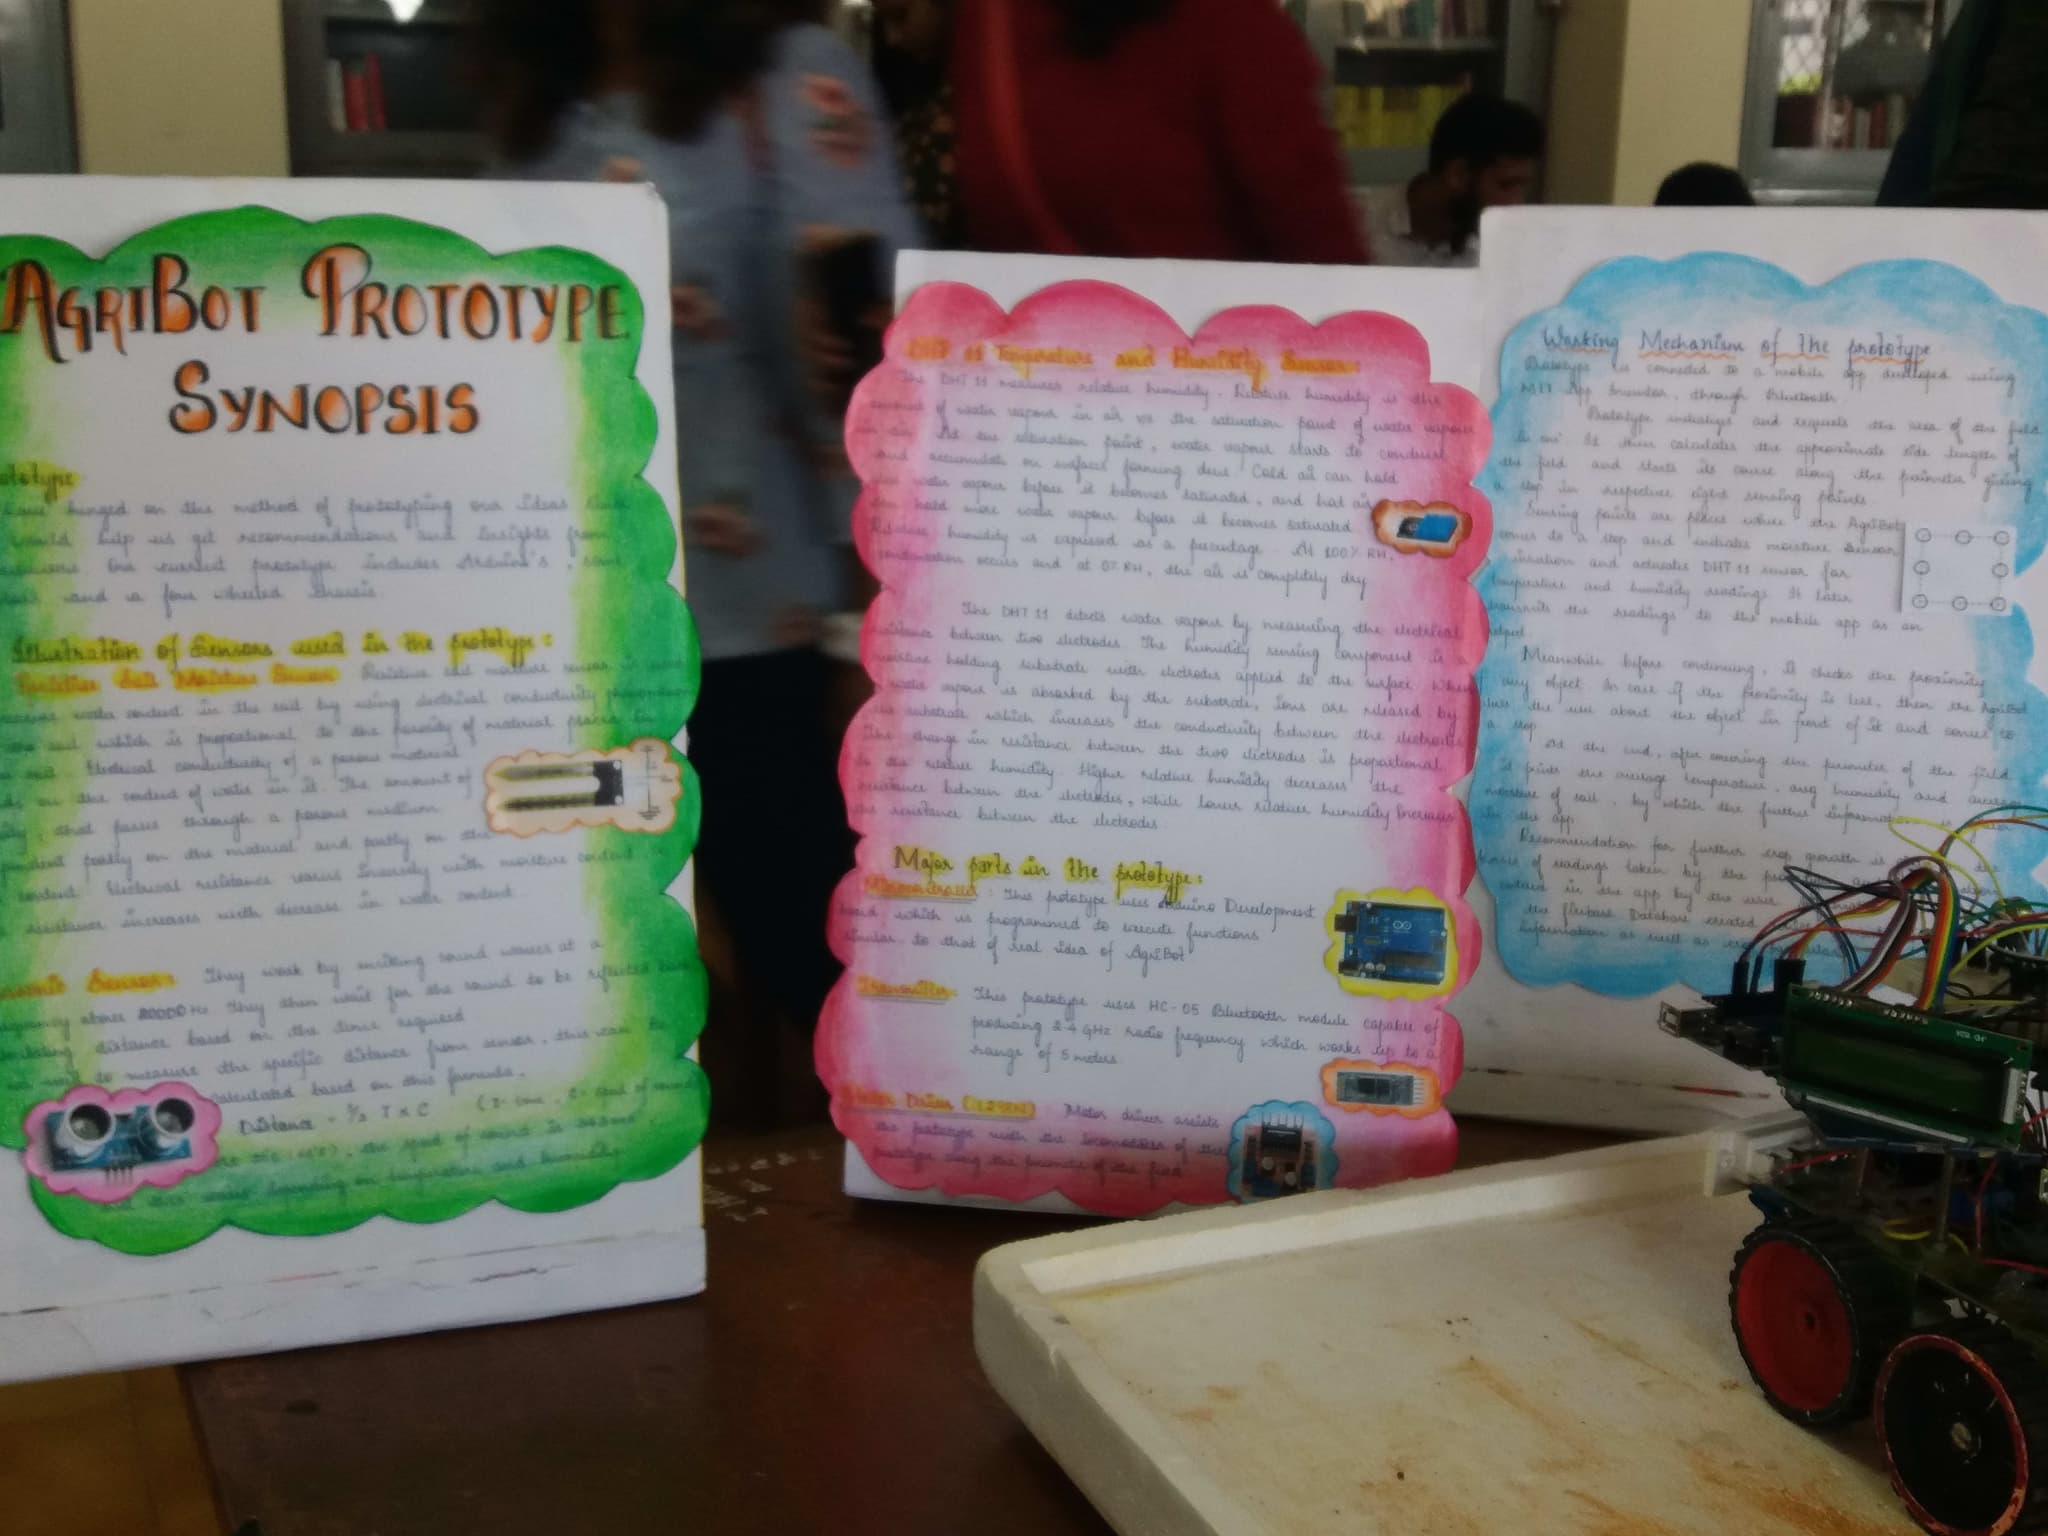 AGRIBOT PROTOTYPE
SYNOPSIS
on the method of prototyping our ideas
would help us get recommendations and insights from
Our current prototype includes Arduino's, some
and a four wheeled chassis.
Illustration of Sensors used in the prototype:
Resistive Soil Moisture Sensor Resistive soil moisture sensor is used
water content in the soil by using electrical conductivity
soil which is proportional to the porosity of material
Electrical conductivity of a porous material
on the content of water in it. The amount of
that passes through a porous medium
partly on the material and partly on the
content. Electrical resistance varies inversely with moisture content
resistance increases with decrease in water content.
Sensor: They work by emitting sound waves at a
frequency above 20000 Hz. They then wait for the sound to be reflected
distance based on the time required
to measure the specific distance from sensor, this can be
calculated based on this formula.
Distance = 1/2 T x C
the speed of sound is
depending on temperature and humidity.
DHT 11 Temperature and Humidity Sensor:
The DHT 11 measures relative humidity. Relative humidity is the
amount of water vapour in air vs the saturation point of water vapour
in air. At the saturation point, water vapour starts to condense
and accumulate on surfaces forming dew. Cold air can hold
less water vapour before it becomes saturated, and hot air
can hold more water vapour before it becomes saturated.
Relative humidity is expressed as a percentage. At 100% RH,
condensation occurs and at 0% RH, the air is completely dry
The DHT 11 detects water vapour by measuring the electrical
resistance between two electrodes. The humidity sensing component is a
moisture holding substrate with electrodes applied to the surface. When
water vapour is absorbed by the substrate, ions are released by
the substrate which increases the conductivity between the electrodes
The change in resistance between the two electrodes is proportional
to the relative humidity. Higher relative humidity decreases the
resistance between the electrodes, while lower relative humidity increases
the resistance between the electrodes.
Major parts in the prototype:
Microcontroller: This prototype uses Arduino Development
board, which is programmed to execute functions
similar to that of real idea of AgriBot
Transmitter: This prototype uses HC-05 Bluetooth module capable of
producing 2.4 GHz radio frequency which works up to a
range of 5 meters.
Motor Driver (L298N) Motor driver assists
the prototype with the locomotion of the
prototype along the perimeter of the field
Working Mechanism of the prototype
Prototype is connected to a mobile app developed using
MIT App Inventor, through Bluetooth.
Prototype initializes and requests the area of the field
It then calculates the approximate side lengths of
the field and starts its course along the perimeter giving
a stop in respective eight sensing points.
Sensing points are places where the AgriBot
comes to a stop and initiates moisture sensor
and activates DHT 11 sensor for
temperature and humidity readings. It later
transmits the readings to the mobile app as an
output.
Meanwhile before continuing, it checks the proximity
any object. In case if the proximity is less, then the AgriBot
the user about the object in front of it and comes to
a stop
At the end, after covering the perimeter of the field
it prints the average temperature, avg humidity and average
moisture of soil, by which the further information is
in the app.
Recommendation for further crop growth is
of readings taken by the
in the app by the user
the firebase Database created
information as well as crop